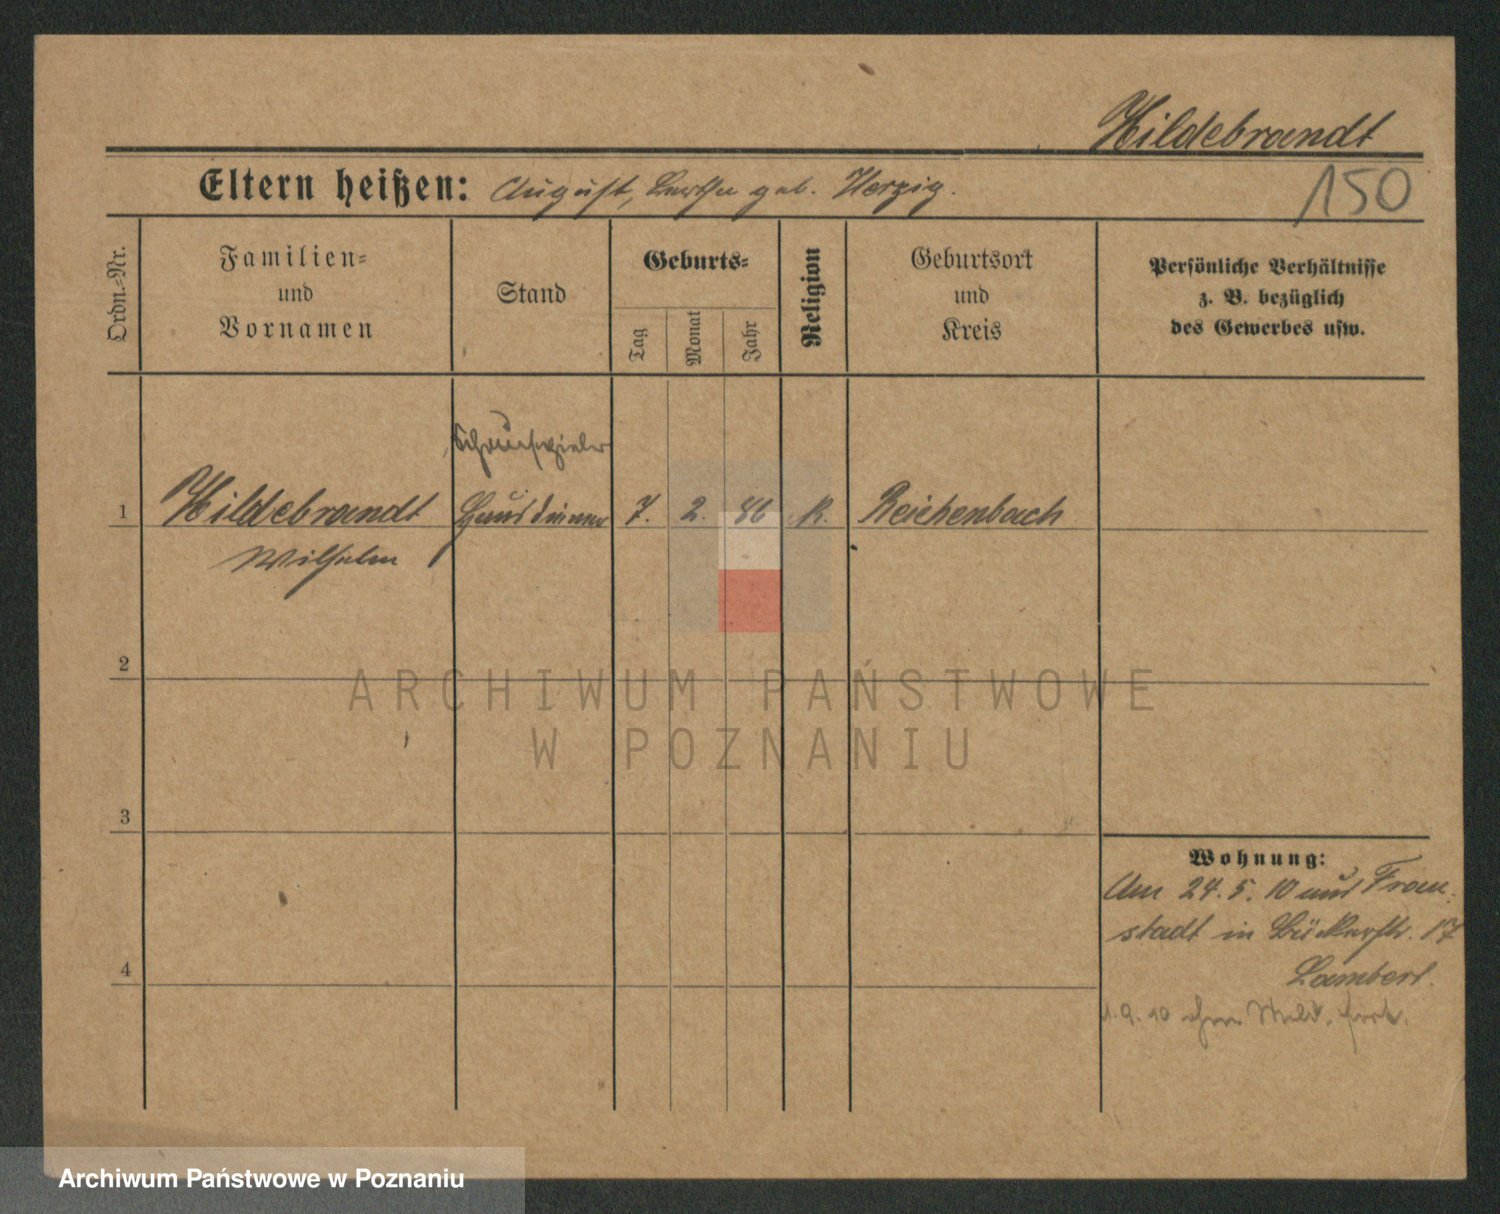 Hildebrandt
Eltern heißen: August, Bertha geb. Herzig.
150
Ordn.-Nr.
Familien-
und
Vornamen
Stand
Geburts-
Tag
Monat
Jahr
Religion
Geburtsort
und
Kreis
Persönliche Verhältnisse
z. B. bezüglich
des Gewerbes usw.
Schauspieler
1 Hildebrandt Hausdiener 7. 2. 86 K. Reichenbach
Wilhelm
2
ARCHIWUM PAŃSTWOWE
W POZNANIU
3
Wohnung:
Am 24. 5. 10 aus Frau-
stadt in Bäckerstr. 17
4
Lambert.
1. 9. 10 ohne Meld. fort.
Archiwum Państwowe w Poznaniu